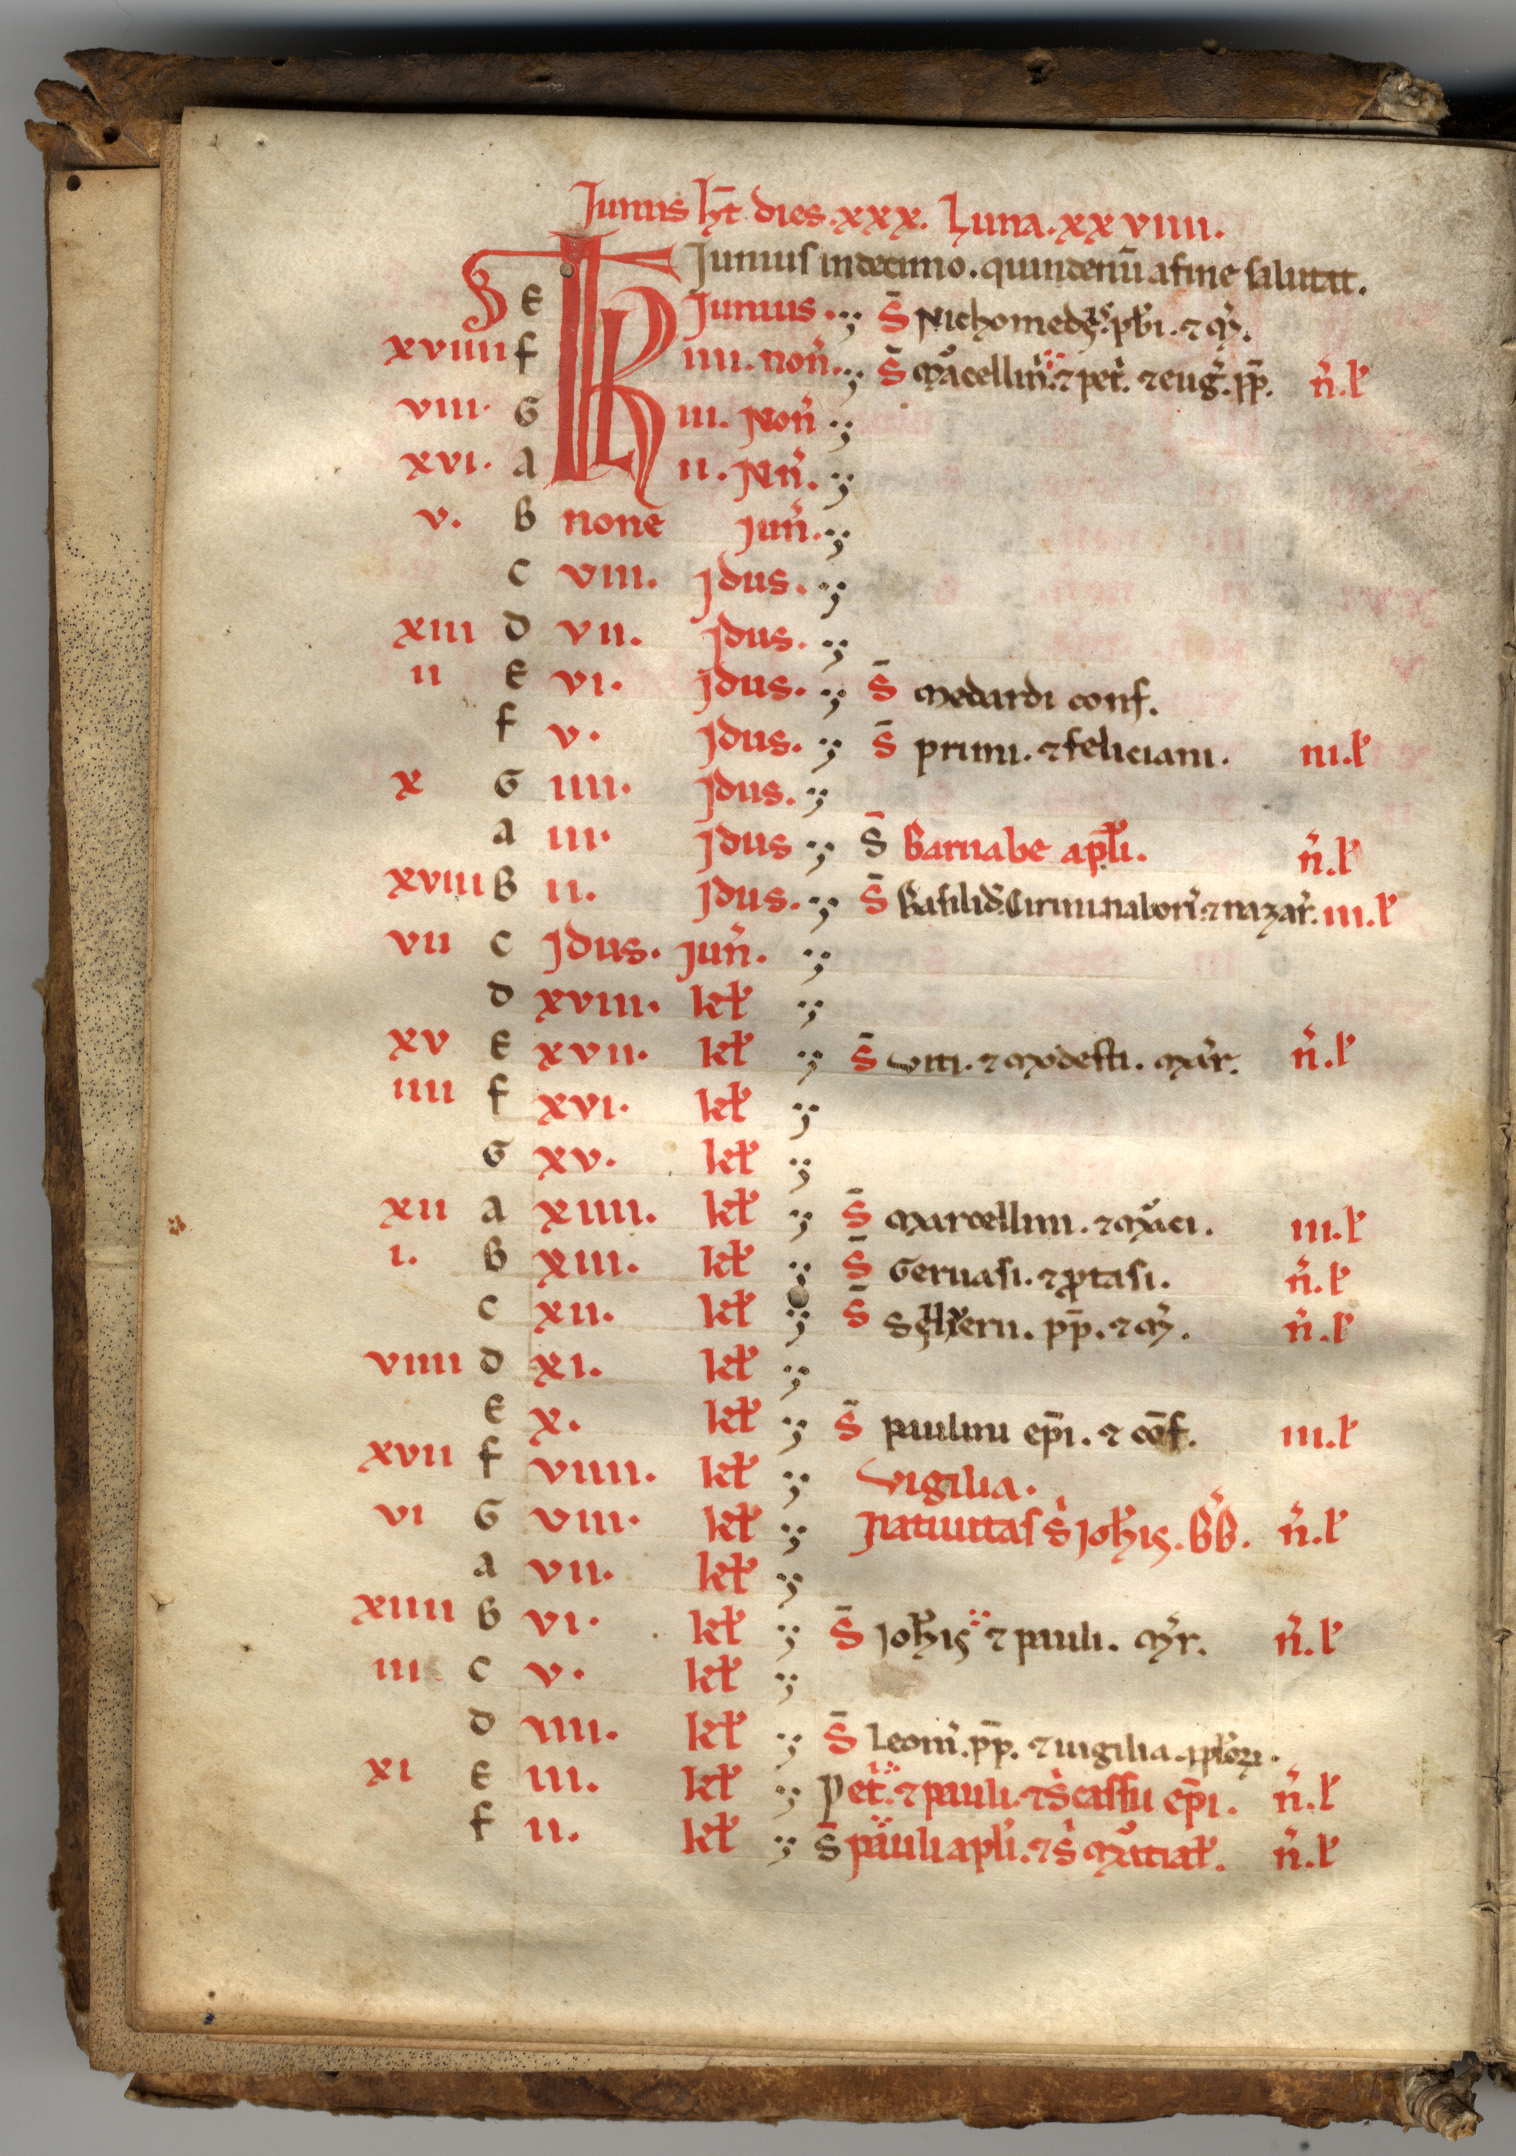 Junius ht̄ dies . xxx . Luna . xx viiii .
Junius in decimo . quindenū a fine salutat .
E KL Junius . S̄ Nichomedę . pb̄i . ⁊ m̄ .
xviiii f iiii . non̄ . S̄ Marcellini . ⁊ pet̄ . ⁊ euḡ . pp̄ . n̄ . l̄
viii . G iii . Non̄
xvi . a ii . Nn̄ .
v . B none jun̄ .
c viii . jdus .
xiii d vii . jdus .
ii E vi . jdus . S̄ medardi conf .
f v . jdus . S̄ primi . ⁊ feliciani . iii . l̄
x G iiii . jdus .
a iii . jdus S̄ Barnabe apl̄i . n̄ . l̄
xviii B ii . jdus . S̄ Basilid̄ . Cirini . nabori . ⁊ nazar̄ . iii . l̄
vii c jdus . jun̄ .
d xviii . kł
xv E xvii . kł S̄ viti . ⁊ modesti . mar̄ . n̄ . l̄
iiii f xvi . kł
G xv . kł
xii a xiiii . kł S̄ marcellini . ⁊ marci . iii . l̄
i . B xiii . kł S̄ Geruasi . ⁊ ꝓtasi . n̄ . l̄
c xii . kł S̄ . pp̄ . ⁊ m̄ . n̄ . l̄
viiii d xi . kł
E x . kł S̄ paulini ep̄i . ⁊ cōf . iii . l̄
xvii f viiii . kł vigilia .
vi G viii . kł natiuitas s̄ joh̄is . b̄b̄ . n̄ . l̄
a vii . kł
xiiii B vi . kł S̄ joh̄is ⁊ pauli . m̄r . n̄ . l̄
iii c v . kł
d iiii . kł S̄ Leoni . pp̄ . ⁊ uigilia . apl̄oꝝ .
xi E iii . kł Pet̄ . ⁊ pauli . ⁊ s̄ cassii ep̄i . n̄ . l̄
f ii . kł S̄ pauli apl̄i . ⁊ s̄ marcial̄ . n̄ . l̄